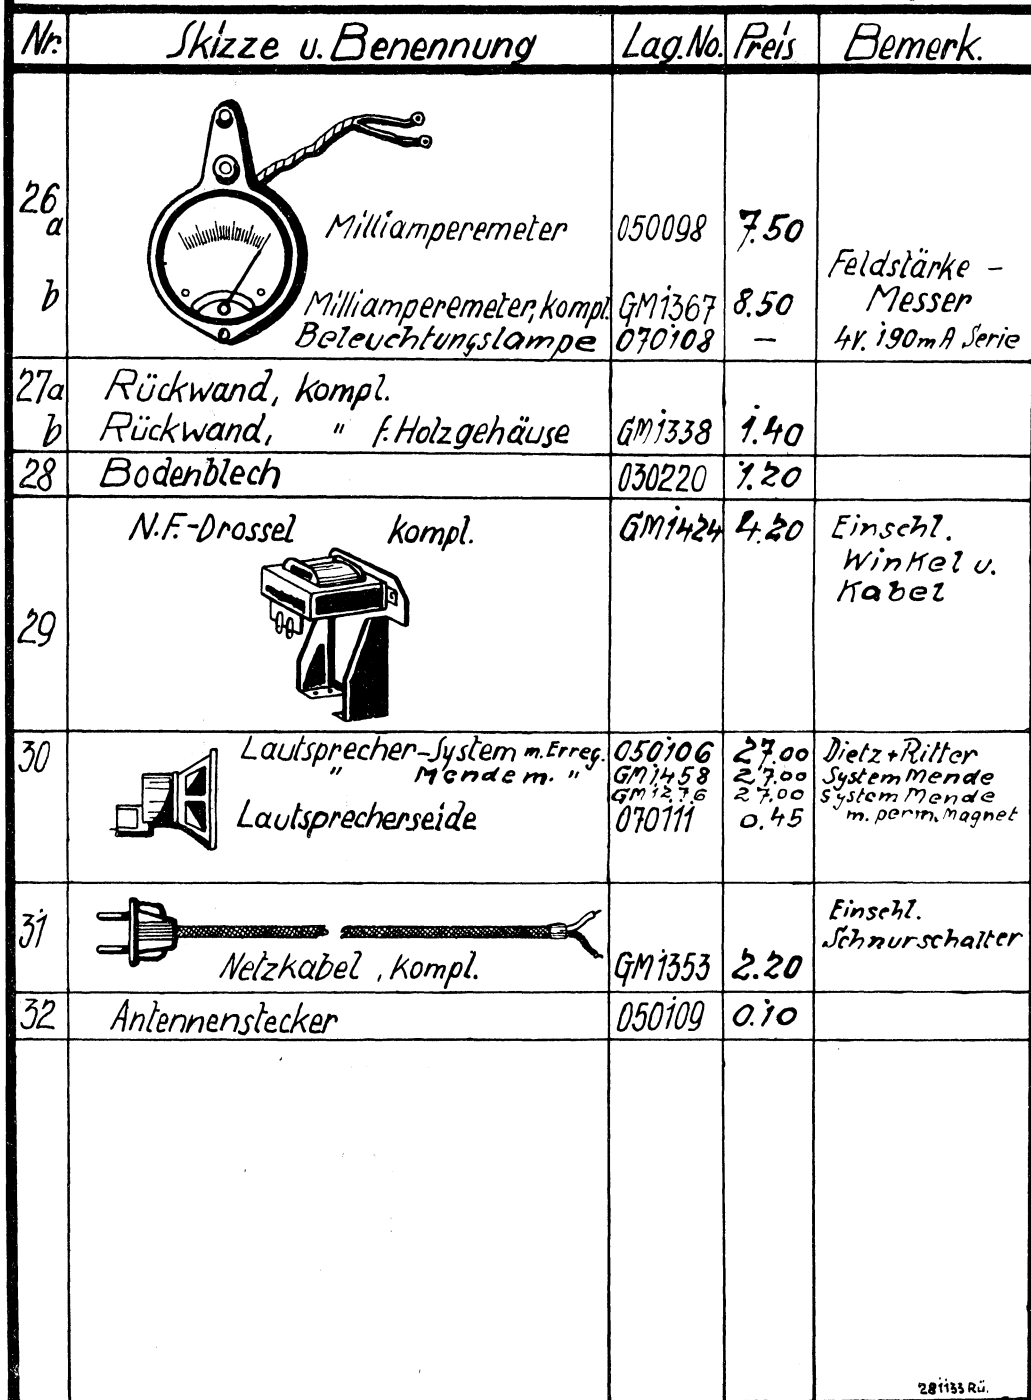 Nr. Skizze u. Benennung Lag.No. Preis Bemerk.
26
a Milliamperemeter 050098 7.50
Feldstärke -
b Milliamperemeter, kompl. GM1367 8.50 Messer
Beleuchtungslampe 070108 — 4V. 190mA Serie
27a Rückwand, kompl.
b Rückwand, " f. Holzgehäuse GM1338 1.40
28 Bodenblech 030220 1.20
N.F.-Drossel kompl. GM1424 4.20 Einschl.
Winkel u.
Kabel
29
30 Lautsprecher-System m. Erreg. 050106 27.00 Dietz + Ritter
" Mende m. " GM1458 27.00 System Mende
GM1276 27.00 System Mende
Lautsprecherseide 070111 0.45 m. perm. Magnet
Einschl.
31 Schnurschalter
Netzkabel, kompl. GM1353 2.20
32 Antennenstecker 050109 0.10
281133 Rü.